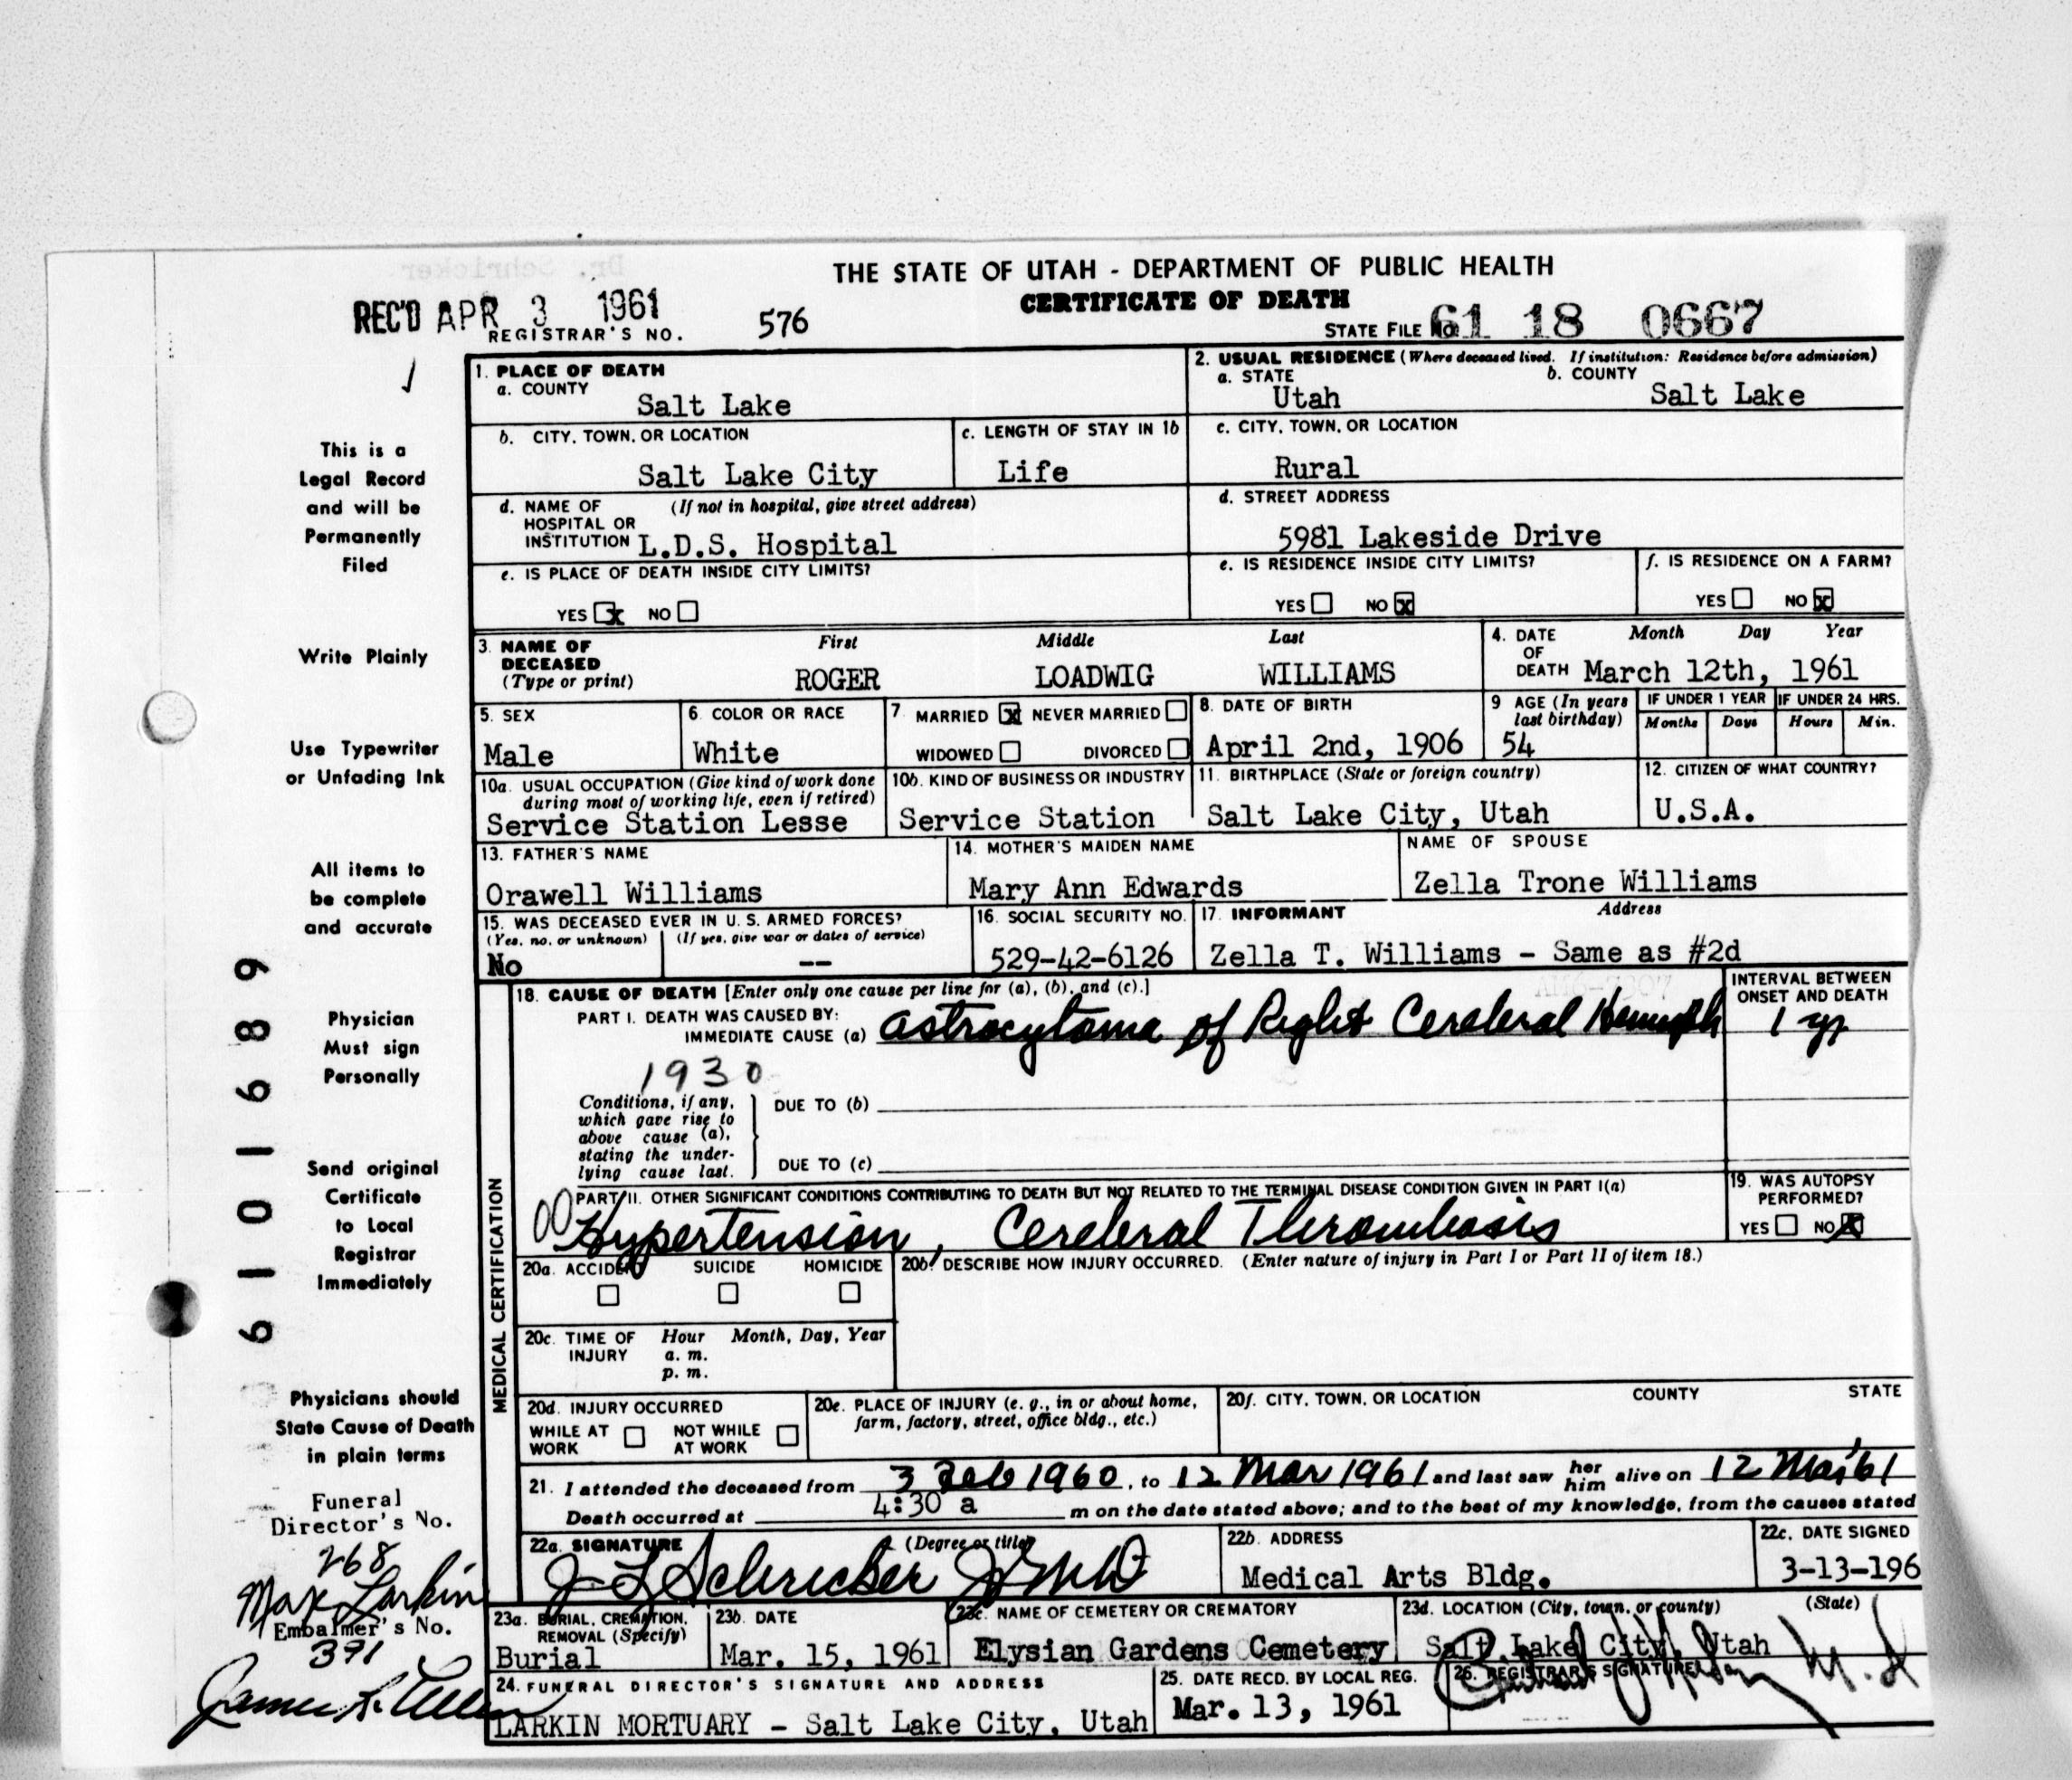 THE STATE OF UTAH - DEPARTMENT OF PUBLIC HEALTH
CERTIFICATE OF DEATH
REC'D APR 3 1961
REGISTRAR'S NO. 576
STATE FILE No. 61 18 0667
This is a
Legal Record
and will be
Permanently
Filed
Write Plainly
Use Typewriter
or Unfading Ink
All items to
be complete
and accurate
Physician
Must sign
Personally
Send original
Certificate
to Local
Registrar
Immediately
Physicians should
State Cause of Death
in plain terms
Funeral
Director's No.
268
Max Larkin
Embalmer's No.
391
6101689
1. PLACE OF DEATH
a. COUNTY
Salt Lake
2. USUAL RESIDENCE (Where deceased lived. If institution: Residence before admission)
a. STATE b. COUNTY
Utah Salt Lake
b. CITY, TOWN, OR LOCATION
Salt Lake City
c. LENGTH OF STAY IN 1b
Life
c. CITY, TOWN, OR LOCATION
Rural
d. NAME OF (If not in hospital, give street address)
HOSPITAL OR
INSTITUTION L.D.S. Hospital
d. STREET ADDRESS
5981 Lakeside Drive
e. IS PLACE OF DEATH INSIDE CITY LIMITS?
YES x NO
e. IS RESIDENCE INSIDE CITY LIMITS?
YES NO x
f. IS RESIDENCE ON A FARM?
YES NO x
3. NAME OF DECEASED (Type or print)
First Middle Last
ROGER LOADWIG WILLIAMS
4. DATE OF DEATH Month Day Year
March 12th, 1961
5. SEX
Male
6. COLOR OR RACE
White
7. MARRIED x NEVER MARRIED
WIDOWED DIVORCED
8. DATE OF BIRTH
April 2nd, 1906
9 AGE (In years last birthday)
54
IF UNDER 1 YEAR IF UNDER 24 HRS.
Months Days Hours Min.
10a. USUAL OCCUPATION (Give kind of work done
during most of working life, even if retired)
Service Station Lesse
10b. KIND OF BUSINESS OR INDUSTRY
Service Station
11. BIRTHPLACE (State or foreign country)
Salt Lake City, Utah
12. CITIZEN OF WHAT COUNTRY?
U.S.A.
13. FATHER'S NAME
Orawell Williams
14. MOTHER'S MAIDEN NAME
Mary Ann Edwards
NAME OF SPOUSE
Zella Trone Williams
15. WAS DECEASED EVER IN U. S. ARMED FORCES?
(Yes, no, or unknown) (If yes, give war or dates of service)
No --
16. SOCIAL SECURITY NO.
529-42-6126
17. INFORMANT Address
Zella T. Williams - Same as #2d
MEDICAL CERTIFICATION
18. CAUSE OF DEATH [Enter only one cause per line for (a), (b), and (c).]
PART I. DEATH WAS CAUSED BY:
IMMEDIATE CAUSE (a) astrocytoma of Right Cerebral
INTERVAL BETWEEN
ONSET AND DEATH
1 yr
1930
Conditions, if any,
which gave rise to
above cause (a),
stating the under-
lying cause last.
DUE TO (b)
DUE TO (c)
PART II. OTHER SIGNIFICANT CONDITIONS CONTRIBUTING TO DEATH BUT NOT RELATED TO THE TERMINAL DISEASE CONDITION GIVEN IN PART I(a)
Hypertension, Cerebral Thrombosis
19. WAS AUTOPSY
PERFORMED?
YES NO x
20a. ACCIDENT SUICIDE HOMICIDE
20b. DESCRIBE HOW INJURY OCCURRED. (Enter nature of injury in Part I or Part II of item 18.)
20c. TIME OF INJURY Hour Month, Day, Year
a. m.
p. m.
20d. INJURY OCCURRED
WHILE AT WORK NOT WHILE AT WORK
20e. PLACE OF INJURY (e. g., in or about home,
farm, factory, street, office bldg., etc.)
20f. CITY, TOWN, OR LOCATION COUNTY STATE
21. I attended the deceased from 3 Feb 1960, to 12 Mar 1961 and last saw her him alive on 12 Mar '61
Death occurred at 4:30 a m on the date stated above; and to the best of my knowledge, from the causes stated
22a. SIGNATURE (Degree or title)
J L Schricker Jr MD
22b. ADDRESS
Medical Arts Bldg.
22c. DATE SIGNED
3-13-196
23a. BURIAL, CREMATION,
REMOVAL (Specify)
Burial
23b. DATE
Mar. 15, 1961
23c. NAME OF CEMETERY OR CREMATORY
Elysian Gardens Cemetery
23d. LOCATION (City, town, or county) (State)
Salt Lake City, Utah
24. FUNERAL DIRECTOR'S SIGNATURE AND ADDRESS
LARKIN MORTUARY - Salt Lake City, Utah
25. DATE RECD. BY LOCAL REG.
Mar. 13, 1961
26. REGISTRAR'S SIGNATURE